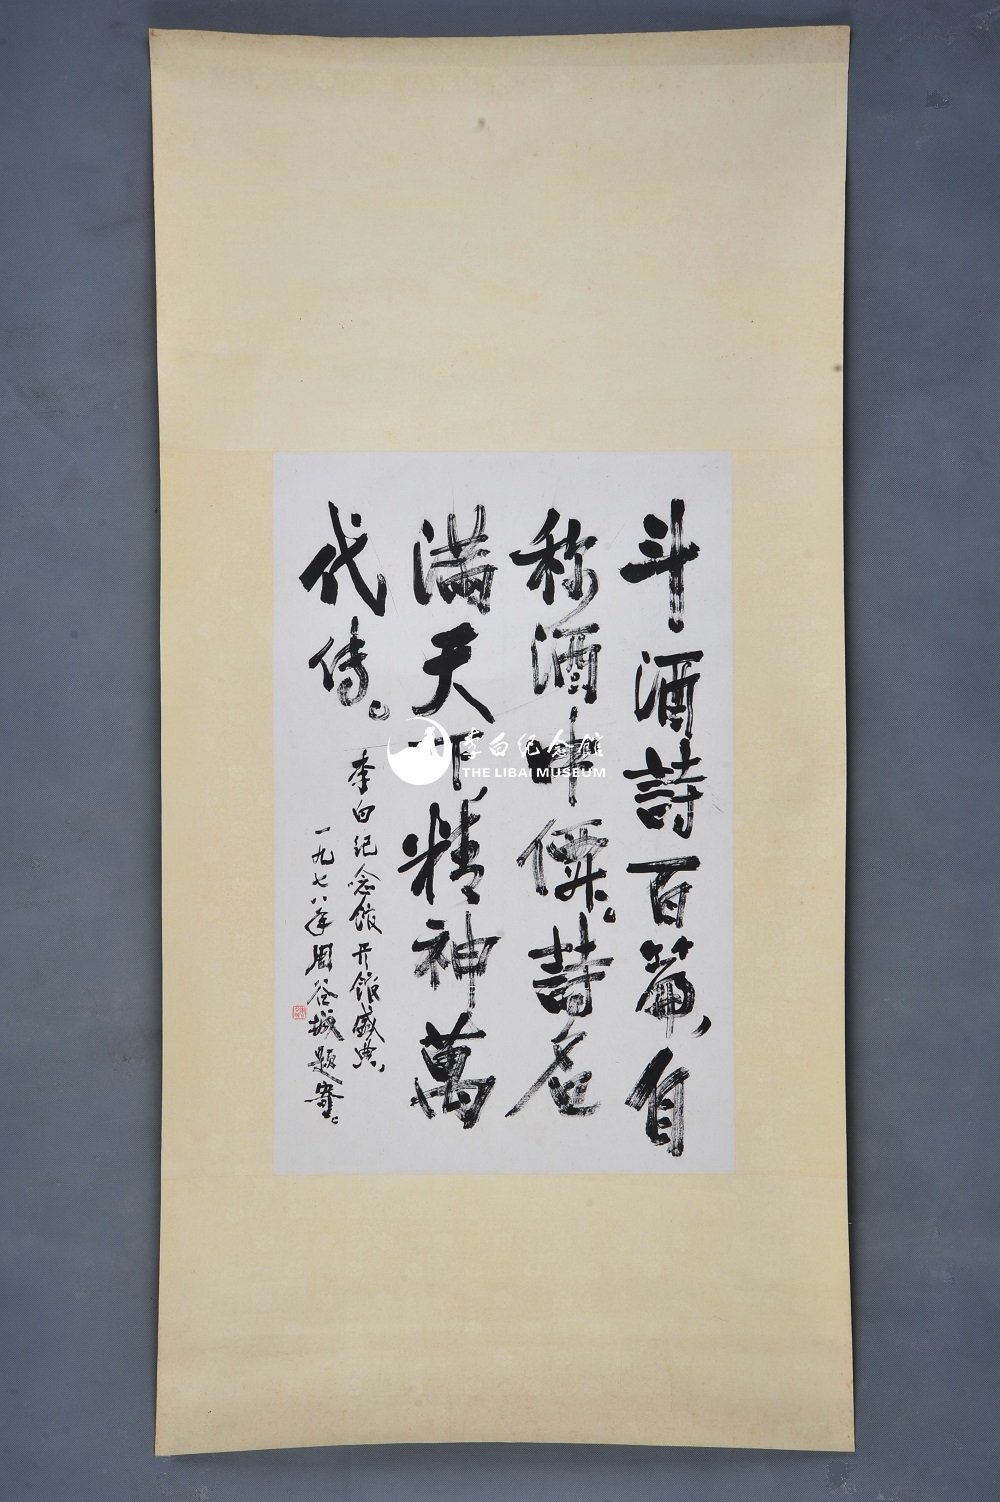 斗酒詩百篇，自
称酒中僊。詩名
满天下，精神萬
代传。
李白纪念馆开馆盛典，
一九七八年周谷城题寄。
李白纪念馆
THE LIBAI MUSEUM